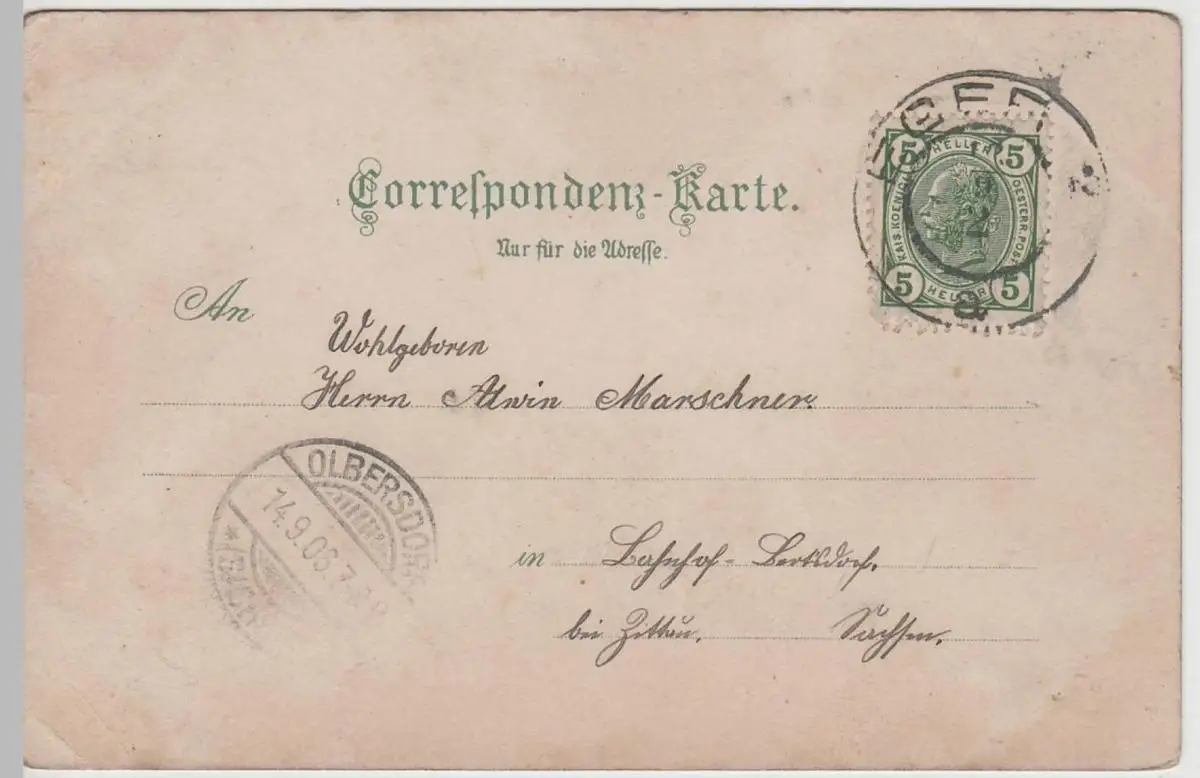 Correspondenz-Karte.
Nur für die Adresse.
5 HELLER 5
KAIS. KOENIGL. OESTERR. POST
5 HELLER 5
An
Wohlgeboren
Herrn Alwin Marschner.
OLBERSDORF
14.9.06.7
in Bahnhof-Bertsdorf.
bei Zittau. Sachsen.